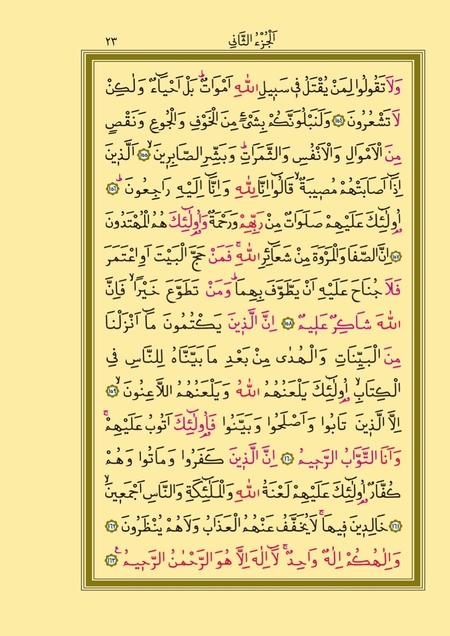 اَلْجُزْءُ الثَّانِي ٢٣
وَلَا تَقُولُوا لِمَنْ يُقْتَلُ فٖي سَبٖيلِ اللّٰهِ اَمْوَاتٌۜ بَلْ اَحْيَٓاءٌ وَلٰكِنْ
لَا تَشْعُرُونَ ﴿١٥٤﴾ وَلَنَبْلُوَنَّكُمْ بِشَيْءٍ مِنَ الْخَوْفِ وَالْجُوعِ وَنَقْصٍ
مِنَ الْاَمْوَالِ وَالْاَنْفُسِ وَالثَّمَرَاتِۜ وَبَشِّرِ الصَّابِرٖينَۙ ﴿١٥٥﴾ اَلَّذٖينَ
اِذَٓا اَصَابَتْهُمْ مُصٖيبَةٌۙ قَالُٓوا اِنَّا لِلّٰهِ وَاِنَّٓا اِلَيْهِ رَاجِعُونَۜ ﴿١٥٦﴾
اُو۬لٰٓئِكَ عَلَيْهِمْ صَلَوَاتٌ مِنْ رَبِّهِمْ وَرَحْمَةٌ وَاُو۬لٰٓئِكَ هُمُ الْمُهْتَدُونَ
﴿١٥٧﴾ اِنَّ الصَّفَا وَالْمَرْوَةَ مِنْ شَعَٓائِرِ اللّٰهِۚ فَمَنْ حَجَّ الْبَيْتَ اَوِ اعْتَمَرَ
فَلَا جُنَاحَ عَلَيْهِ اَنْ يَطَّوَّفَ بِهِمَاۜ وَمَنْ تَطَوَّعَ خَيْرًاۙ فَاِنَّ
اللّٰهَ شَاكِرٌ عَلٖيمٌ ﴿١٥٨﴾ اِنَّ الَّذٖينَ يَكْتُمُونَ مَٓا اَنْزَلْنَا
مِنَ الْبَيِّنَاتِ وَالْهُدٰى مِنْ بَعْدِ مَا بَيَّنَّاهُ لِلنَّاسِ فِي
الْكِتَابِۙ اُو۬لٰٓئِكَ يَلْعَنُهُمُ اللّٰهُ وَيَلْعَنُهُمُ اللَّاعِنُونَۙ ﴿١٥٩﴾
اِلَّا الَّذٖينَ تَابُوا وَاَصْلَحُوا وَبَيَّنُوا فَاُو۬لٰٓئِكَ اَتُوبُ عَلَيْهِمْۚ
وَاَنَا التَّوَّابُ الرَّحٖيمُ ﴿١٦٠﴾ اِنَّ الَّذٖينَ كَفَرُوا وَمَاتُوا وَهُمْ
كُفَّارٌ اُو۬لٰٓئِكَ عَلَيْهِمْ لَعْنَةُ اللّٰهِ وَالْمَلٰٓئِكَةِ وَالنَّاسِ اَجْمَعٖينَۙ
﴿١٦١﴾ خَالِدٖينَ فٖيهَاۚ لَا يُخَفَّفُ عَنْهُمُ الْعَذَابُ وَلَا هُمْ يُنْظَرُونَ ﴿١٦٢﴾
وَاِلٰهُكُمْ اِلٰهٌ وَاحِدٌۚ لَٓا اِلٰهَ اِلَّا هُوَ الرَّحْمٰنُ الرَّحٖيمُ۟ ﴿١٦٣﴾